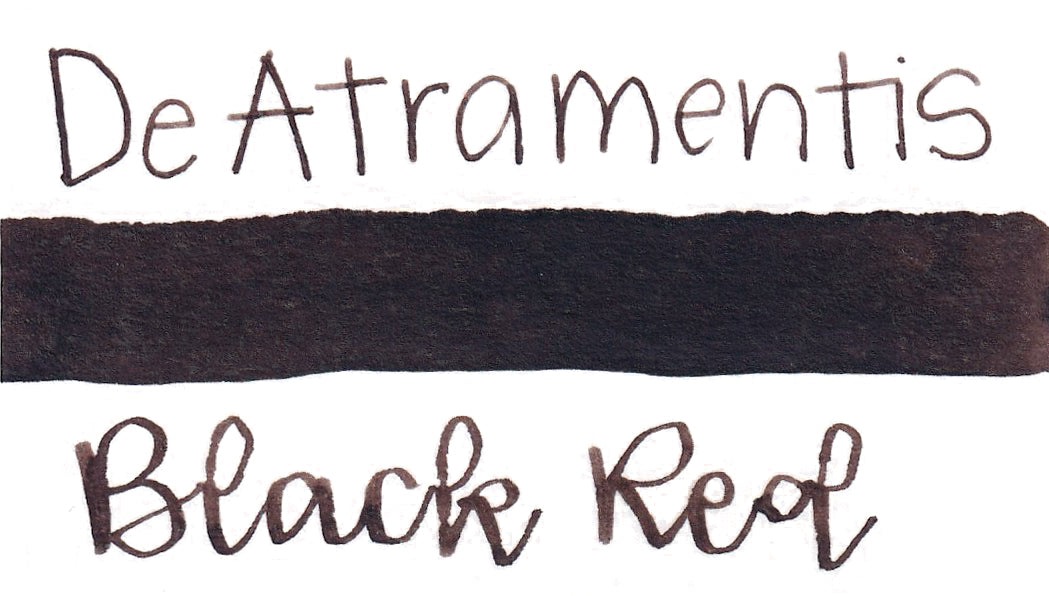 De Atramentis
Black Red